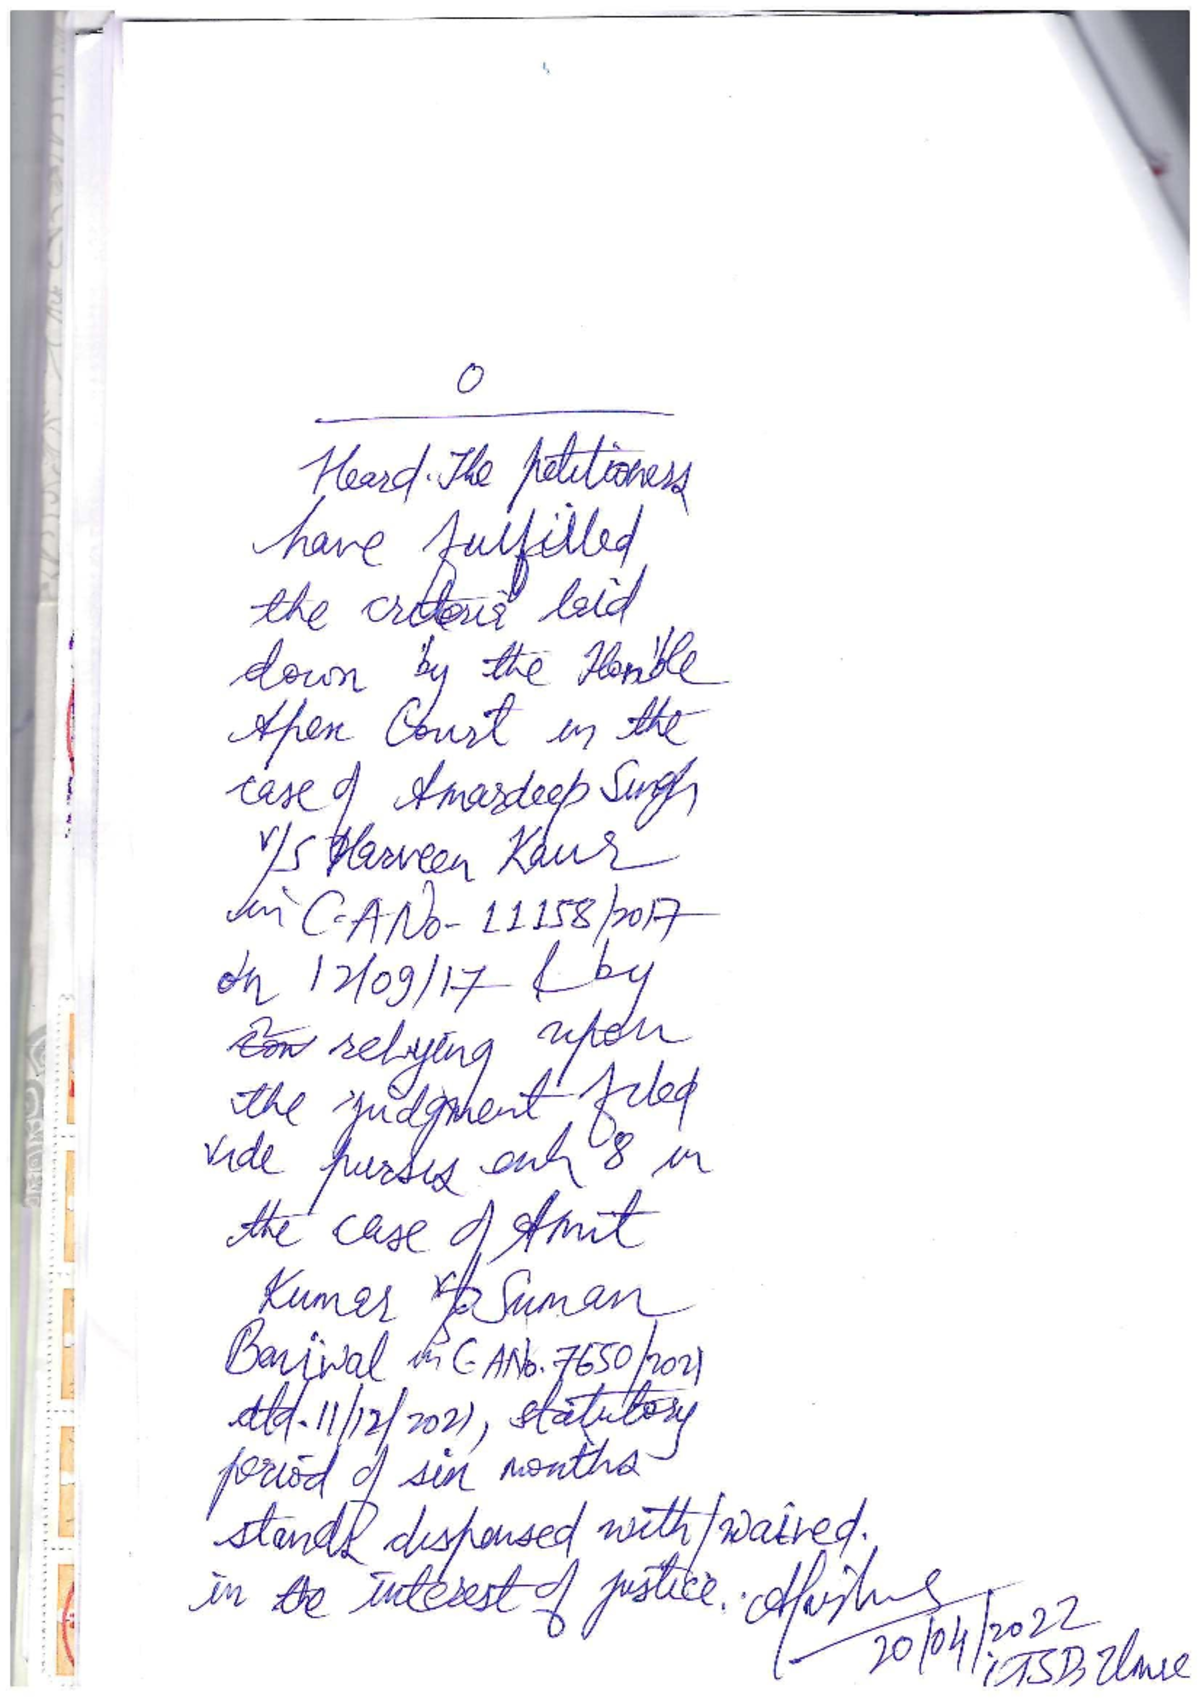 O
Heard. The petitioners
have fulfilled
the criteria laid
down by the Hon'ble
Apex Court in the
case of Amardeep Singh
v/s Harveen Kaur
in C.A No- 11158/2017
on 12/09/17 & by
relying upon
the judgment filed
vide pursis exh 8 in
the case of Amit
Kumar v/s Suman
Beniwal in C.A No. 7650/2021
dtd. 11/12/2021, statutory
period of six months
stands dispensed with/waived.
in the interest of justice.
20/04/2022